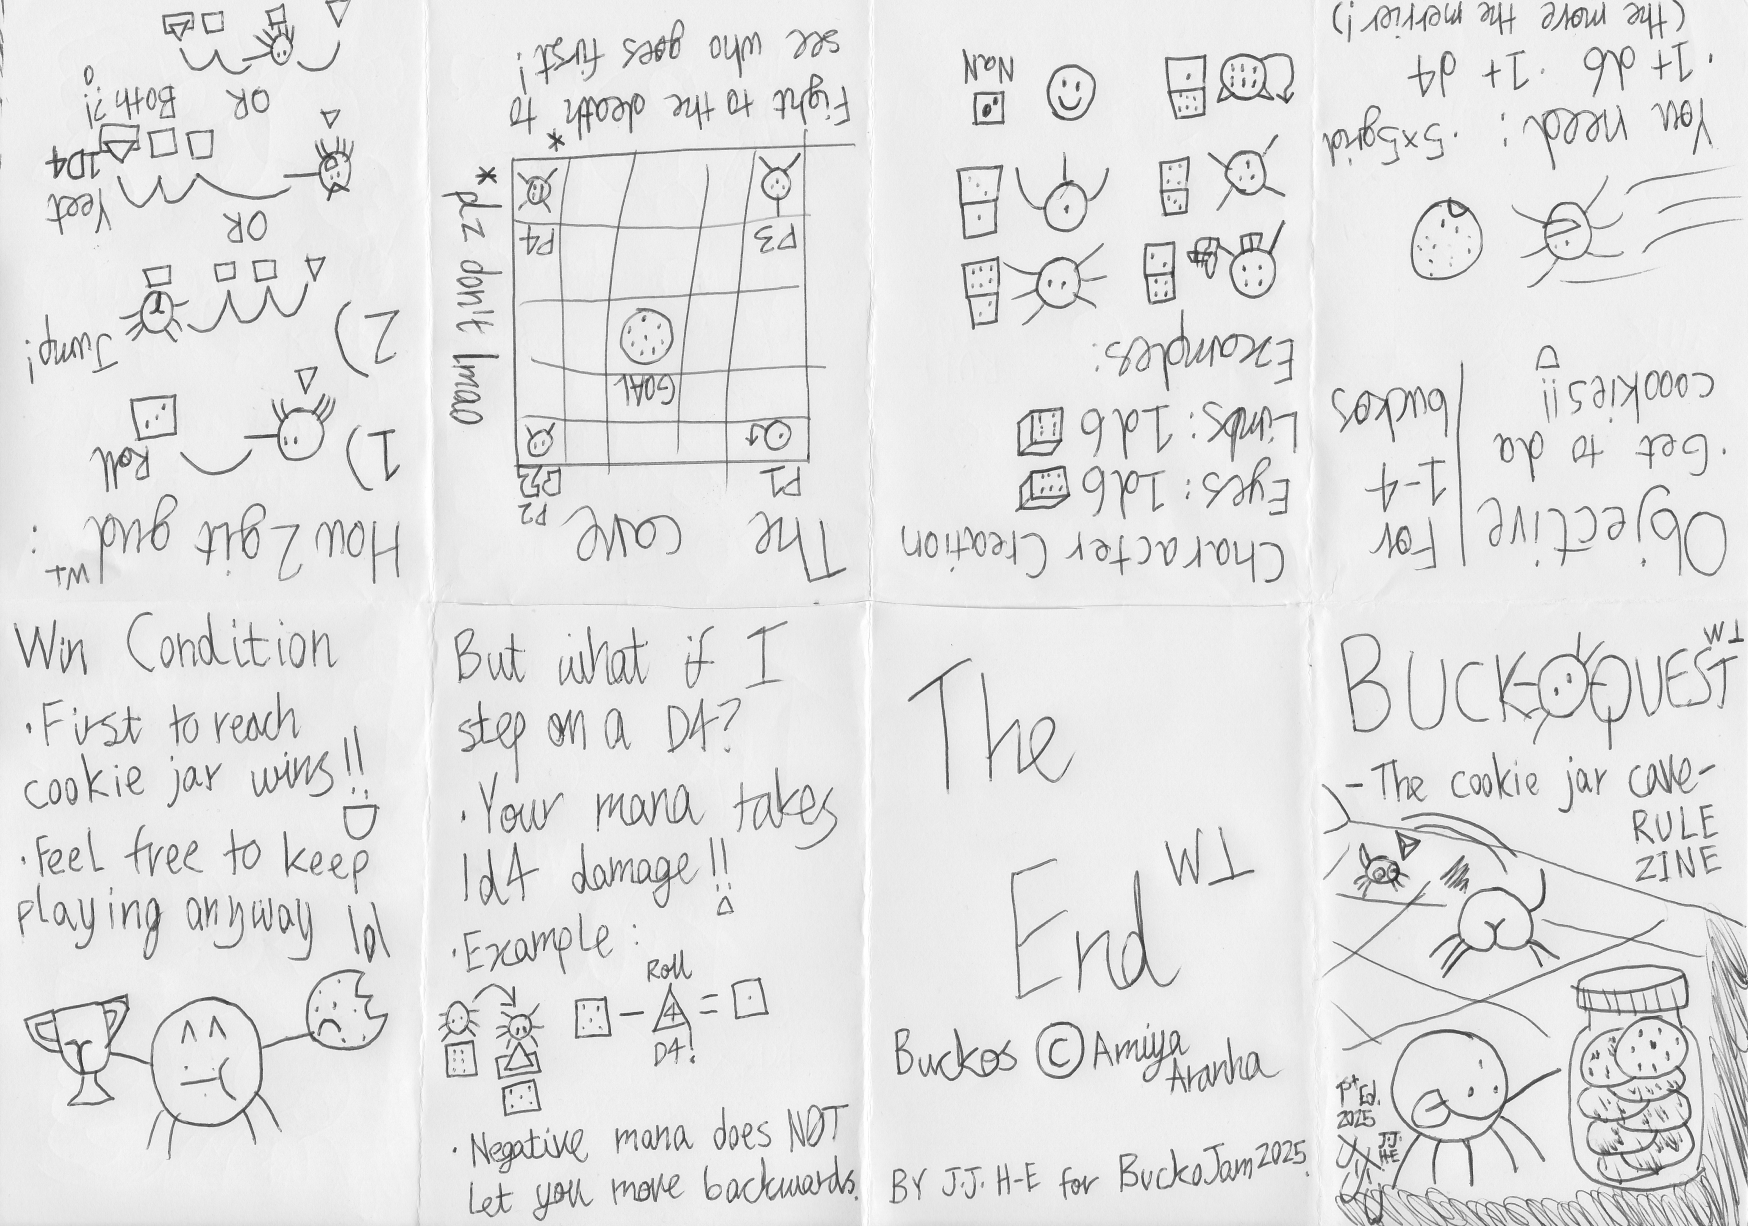 BUCKOQUEST WT
- The cookie jar cave -
RULE
ZINE
1st
Ed.
2025
J.J.
H-E
Objective
· Get to da
coookies!!
For
1-4
buckos
You need:
· 5x5grid
· 1+ d6
· 1+ d4
(the more the merrier!)
Character Creation
Eyes: 1d6
Limbs: 1d6
Examples:
NaN
The cave
P1
P2
GOAL
P3
P4
*
Fight to the death to
see who goes first!
* plz don't lmao
How 2 git gud WT:
1)
Roll
2)
Jump!
OR
Yeet
1D4
OR
Both?!
Win Condition
· First to reach
cookie jar wins!!
· Feel free to keep
playing anyway lol
But what if I
step on a D4?
· Your mana takes
1d4 damage!!
· Example:
Roll
- 4 =
D4!
· Negative mana does NOT
let you move backwards.
The
End WT
Buckos © Amiya
Aranha
BY J.J. H-E for BuckoJam2025